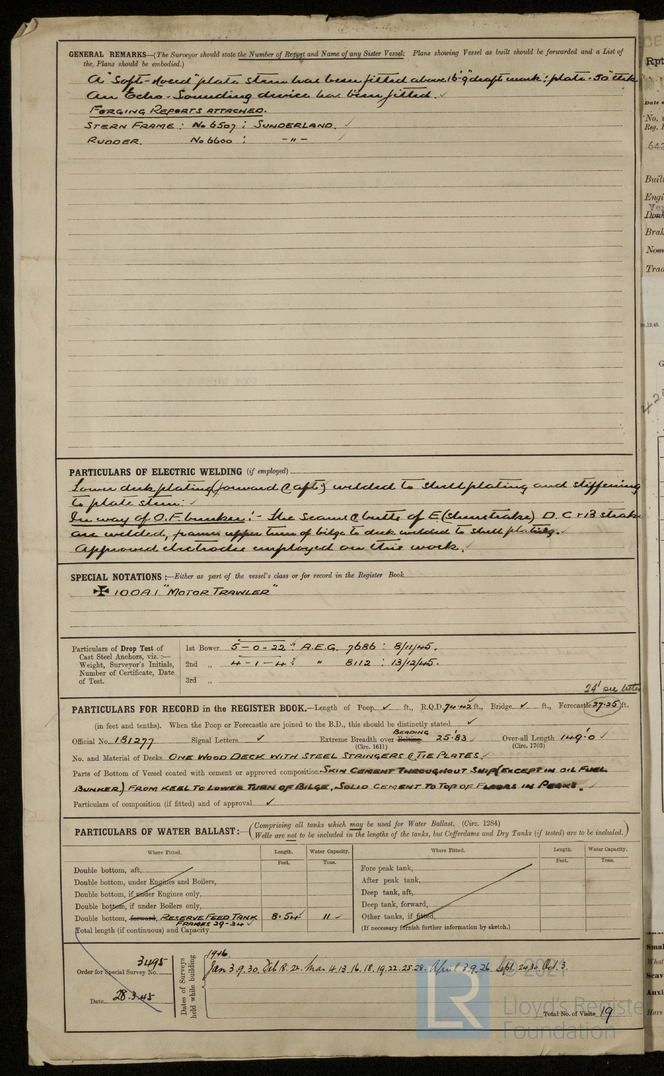 GENERAL REMARKS—(The Surveyor should state the Number of Report and Name of any Sister Vessel. Plans showing Vessel as built should be forwarded and a List of
the Plans should be embodied.)
A "soft-nosed" plate stem has been fitted above 16'9" draft mark: plate .50" thk
An Echo-Sounding device has been fitted. ✓
FORGING REPORTS ATTACHED.
STERN FRAME: No 6507: SUNDERLAND. ✓
RUDDER. No 6600: -"- ✓
PARTICULARS OF ELECTRIC WELDING (if employed)
Lower deck plating (forward & aft) welded to shell plating and stiffening
to plate stem. ✓
In way of O.F. bunker:- The seams & butts of E (sheerstrake) D. C & B strakes
are welded, frames upper turn of bilge to deck welded to shell plating.
Approved electrodes employed on this work. ✓
SPECIAL NOTATIONS:—Either as part of the vessel's class or for record in the Register Book
✠ 100A1 "MOTOR TRAWLER"
Particulars of Drop Test of
Cast Steel Anchors, viz.:—
Weight, Surveyor's Initials,
Number of Certificate, Date
of Test.
1st Bower 5-0-22: A.E.G. 7686: 8/11/45.
2nd „ 4-1-4: " 8112: 13/12/45.
3rd „
24' see letter
PARTICULARS FOR RECORD in the REGISTER BOOK.—Length of Poop ✓ ft., R.Q.D. 74.42 ft., Bridge ✓ ft., Forecastle 27.25 ft.
(in feet and tenths). When the Poop or Forecastle are joined to the B.D., this should be distinctly stated ✓
Official No. 181277 Signal Letters ✓ Extreme Breadth over Belting BEADING 25.83 ✓ Over-all Length 149.0 ✓
(Circ. 1611) (Circ. 1703)
No. and Material of Decks ONE WOOD DECK WITH STEEL STRINGERS & TIE PLATES ✓
Parts of Bottom of Vessel coated with cement or approved composition SKIN CEMENT THROUGHOUT SHIP (EXCEPT IN OIL FUEL
BUNKER) FROM KEEL TO LOWER TURN OF BILGE, SOLID CEMENT TO TOP OF FLOORS IN PEAKS. ✓
Particulars of composition (if fitted) and of approval ✓
PARTICULARS OF WATER BALLAST:— (Comprising all tanks which may be used for Water Ballast. (Circ. 1284)
Wells are not to be included in the lengths of the tanks, but Cofferdams and Dry Tanks (if tested) are to be included.)
Where Fitted. Length. Water Capacity. Where Fitted. Length. Water Capacity.
Feet. Tons. Feet. Tons.
Double bottom, aft, Fore peak tank,
Double bottom, under Engines and Boilers, After peak tank,
Double bottom, if under Engines only, Deep tank, aft,
Double bottom, if under Boilers only, Deep tank, forward,
Double bottom, forward, RESERVE FEED TANK FRAMES 29-34 ✓ 8.54 11 ✓ Other tanks, if fitted,
Total length (if continuous) and Capacity (If necessary furnish further information by sketch.)
Order for Special Survey No. 3495
Date 28.3.45
Dates of Surveys held while building
1946
Jan 3.9.30. Feb 8.21. Mar 4.13.16.18.19.22.25.28. April 3.9.26. Sept 24.30. Oct. 3.
Total No. of Visits 19
© 2021
LR
Lloyd's Register
Foundation